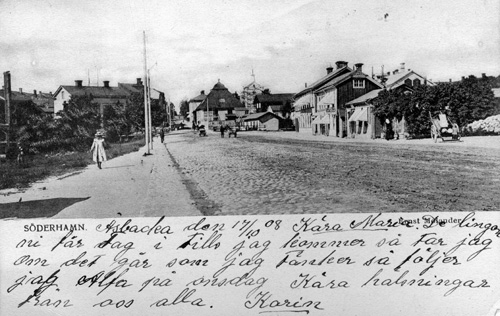 SÖDERHAMN. Asbacka den 17/10 08 Kära Maria. De lingon
Ernst Melander
ni får tag i tills jag kommer så tar jag
om det går som jag tänker så följer
jag Alfa på onsdag Kära halsningar
från oss alla. Karin